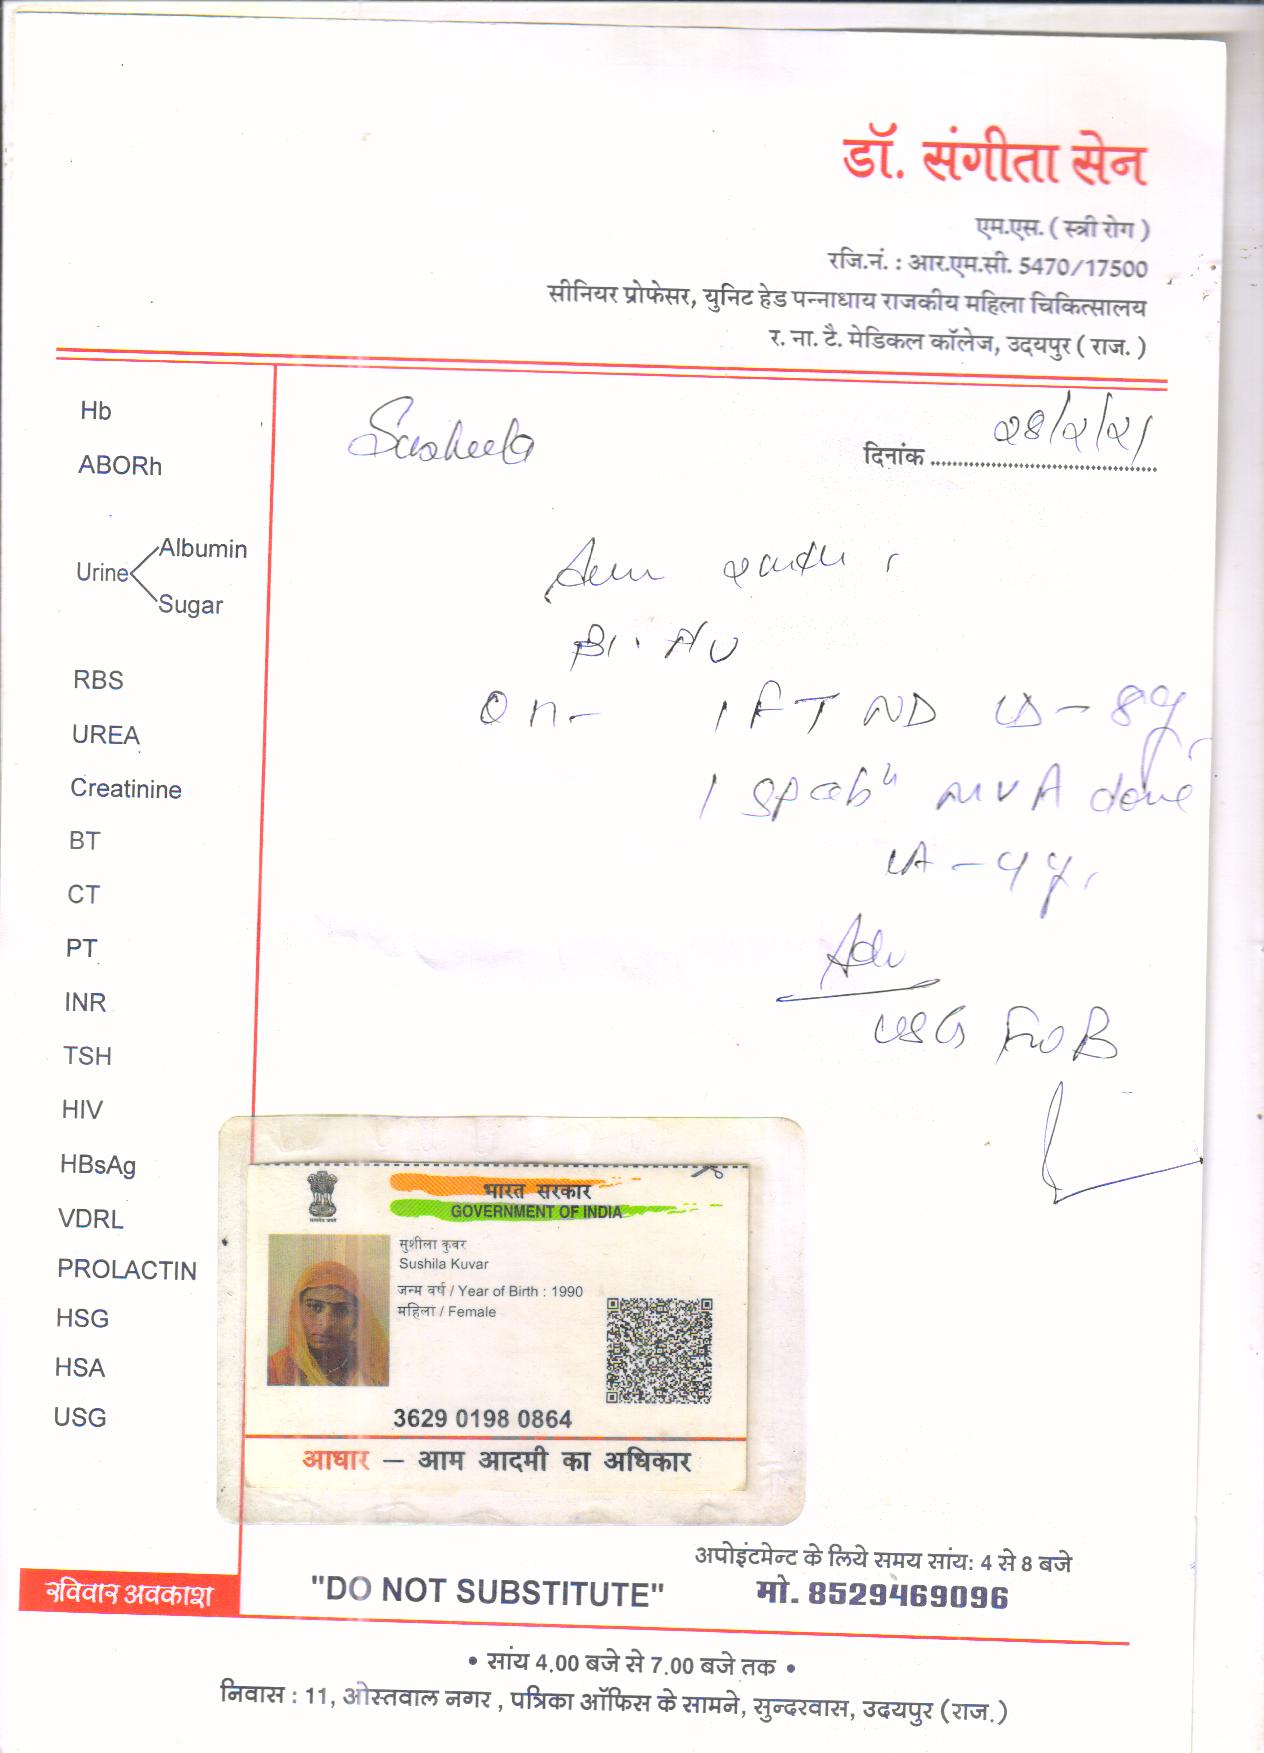 डॉ. संगीता सेन
एम.एस. ( स्त्री रोग )
रजि.नं. : आर.एम.सी. 5470/17500
सीनियर प्रोफेसर, युनिट हेड पन्नाधाय राजकीय महिला चिकित्सालय
र. ना. टै. मेडिकल कॉलेज, उदयपुर ( राज. )
Susheela
दिनांक
Hb
ABORh
Urine
Albumin
Sugar
RBS
UREA
Creatinine
BT
CT
PT
INR
TSH
HIV
HBsAg
VDRL
PROLACTIN
HSG
HSA
USG
1 FTND
MVA done
Adv
USG
भारत सरकार
GOVERNMENT OF INDIA
सुशीला कुवर
Sushila Kuvar
जन्म वर्ष / Year of Birth : 1990
महिला / Female
3629 0198 0864
आधार — आम आदमी का अधिकार
अपोइंटमेन्ट के लिये समय सांय: 4 से 8 बजे
रविवार अवकाश
"DO NOT SUBSTITUTE"
मो. 8529469096
• सांय 4.00 बजे से 7.00 बजे तक •
निवास : 11, ओस्तवाल नगर , पत्रिका ऑफिस के सामने, सुन्दरवास, उदयपुर (राज.)